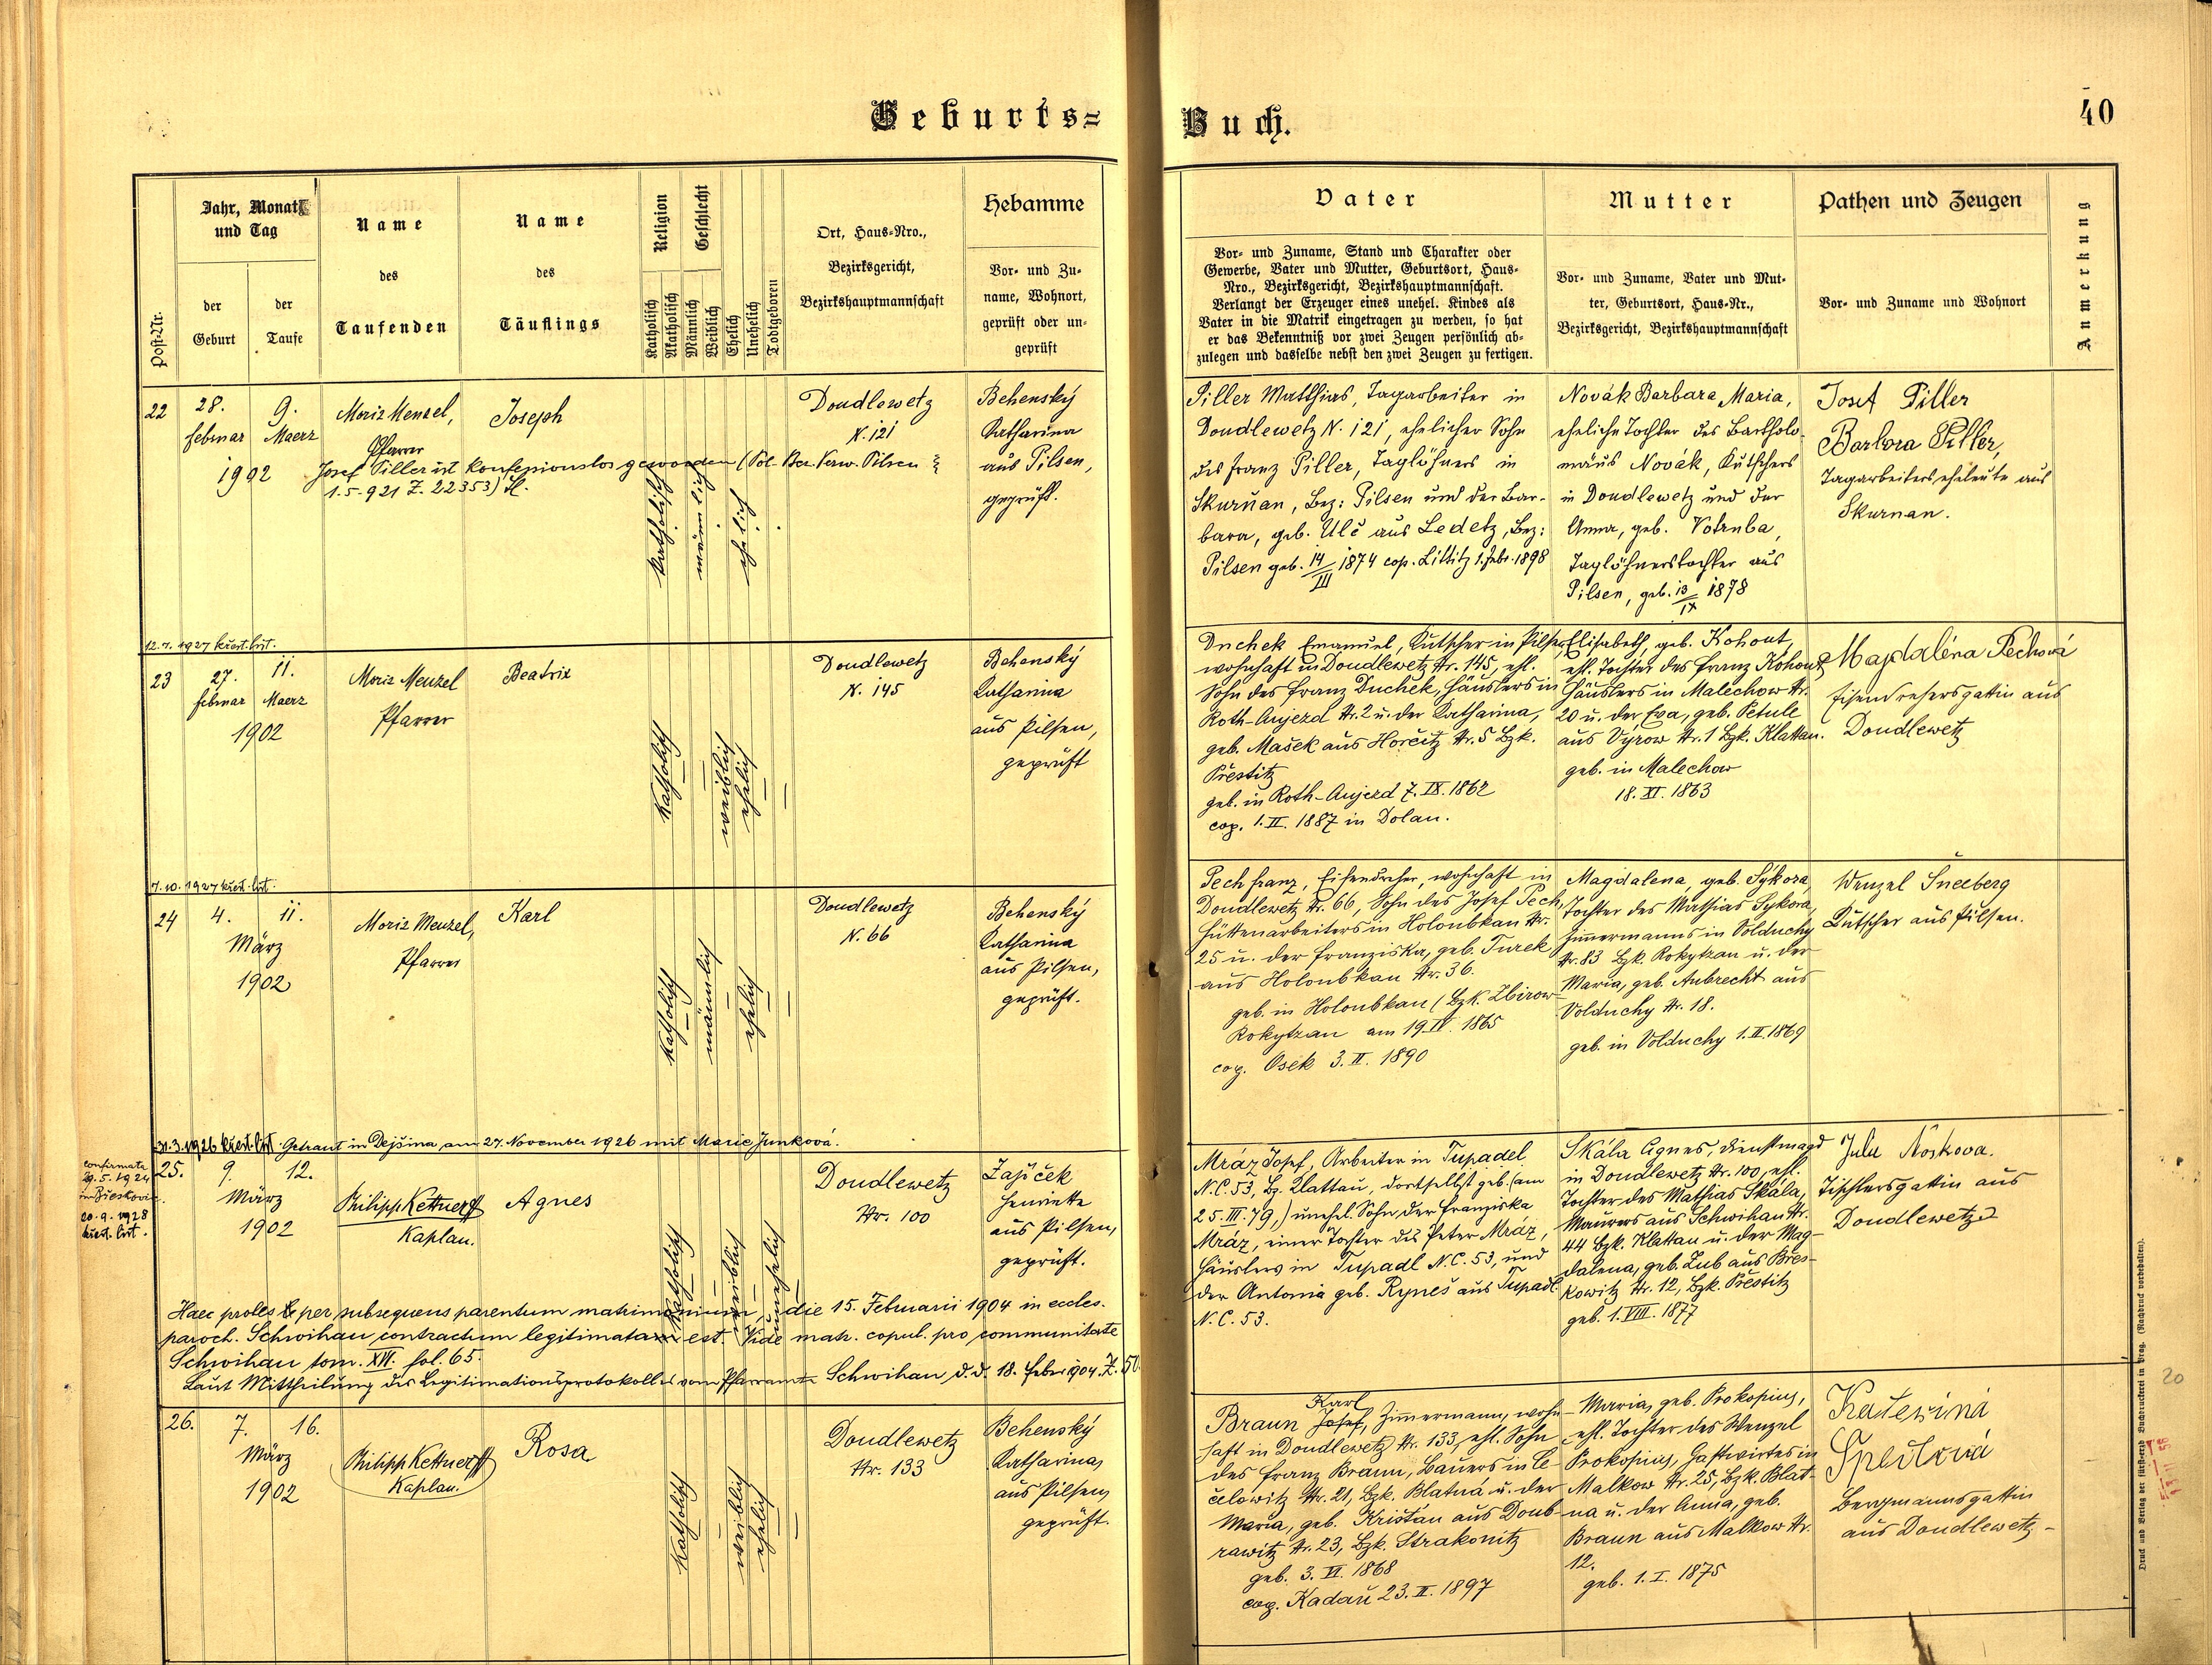 Geburts=
Buch.
40
Post-Nr.
Jahr, Monat
und Tag
der
Geburt
der
Taufe
Name
des
Taufenden
Name
des
Täuflings
Religion
Katholisch
Akatholisch
Geschlecht
Männlich
Weiblich
Ehelich
Unehelich
Todtgeboren
Ort, Haus-Nro.,
Bezirksgericht,
Bezirkshauptmannschaft
Hebamme
Vor- und Zu-
name, Wohnort,
geprüft oder un-
geprüft
Vater
Vor- und Zuname, Stand und Charakter oder
Gewerbe, Vater und Mutter, Geburtsort, Haus-
Nro., Bezirksgericht, Bezirkshauptmannschaft.
Verlangt der Erzeuger eines unehel. Kindes als
Vater in die Matrik eingetragen zu werden, so hat
er das Bekenntniß vor zwei Zeugen persönlich ab-
zulegen und dasselbe nebst den zwei Zeugen zu fertigen.
Mutter
Vor- und Zuname, Vater und Mut-
ter, Geburtsort, Haus-Nr.,
Bezirksgericht, Bezirkshauptmannschaft
Pathen und Zeugen
Vor- und Zuname und Wohnort
Anmerkung
22
28.
februar
9.
Maerz
1902
Moriz Menzel,
Pfarrer
Joseph
Josef Piller ist konfessionslos geworden (Pol. Bez. Verw. Pilsen
1.5.921 Z. 22353)
katholisch
männlich
ehelich
Doudlewetz
N. 121
Behenský
Katharina
aus Pilsen,
geprüft.
Piller Matthias, Tagarbeiter in
Doudlewetz N. 121, ehelicher Sohn
des Franz Piller, Taglöhners in
Skurňan, Bez: Pilsen und der Bar-
bara, geb. Ulč aus Ledetz, Bez:
Pilsen geb. 14/III 1874 cop. Littitz 1. Febr. 1898
Novák Barbara Maria,
eheliche Tochter des Bartholo-
mäus Novák, Kutschers
in Doudlewetz und der
Anna, geb. Votruba,
Taglöhnerstochter aus
Pilsen, geb. 13/IX 1878
Josef Piller
Barbora Piller,
Tagarbeiterseheleute aus
Skurnan.
12.7.1927 křest. list.
23
27.
februar
11.
Maerz
1902
Moriz Menzel
Pfarrer
Beatrix
Katholisch
weiblich
ehelich
Doudlewetz
N. 145
Behenský
Katharina
aus Pilsen,
geprüft
Duchek Emanuel, Kutscher in Pilsen,
wohnhaft in Doudlewetz Nr. 145, ehl.
Sohn des Franz Duchek, Häuslers in
Roth-Aujezd Nr. 2 u. der Katharina,
geb. Mašek aus Horčitz Nr. 5 Bzk.
Přestitz
geb. in Roth-Aujezd 7. IX. 1862
cop. 1. II. 1887 in Dolan.
Elisabeth, geb. Kohout,
ehl. Tochter des Franz Kohout,
Häuslers in Malechow Nr.
20 u. der Eva, geb. Petule
aus Výrow Nr. 1 Bzk. Klattau.
geb. in Malechow
18. XI. 1863
Magdaléna Pechová
Eisendrehersgattin aus
Doudlewetz
7.10.1927 křest. list.
24
4.
März
11.
1902
Moriz Menzel,
Pfarrer
Karl
Katholisch
männlich
ehelich
Doudlewetz
N. 66
Behenský
Katharina
aus Pilsen,
geprüft.
Pech Franz, Eisendreher, wohnhaft in
Doudlewetz Nr. 66, Sohn des Josef Pech,
Hüttenarbeiters in Holoubkau Nr.
25 u. der Franziska, geb. Turek
aus Holoubkau Nr. 36.
geb. in Holoubkau (Bzk. Zbirow
Rokytzan am 19. IV. 1865
cop. Osek 3. II. 1890
Magdalena, geb. Sýkora,
Tochter des Mathias Sýkora,
Zimmermanns in Volduchy
Nr. 83 Bzk. Rokytzan u. der
Maria, geb. Aubrecht aus
Volduchy Nr. 18.
geb. in Volduchy 1. II. 1869
Wenzel Šneeberg
Kutscher aus Pilsen.
31.3.1926 křest. list. Getraut in Dejšina am 27. November 1926 mit Marie Junková.
confirmata
29.5.1924
20.9.1928
křest. list.
25.
9.
März
12.
1902
Philipp Kettner
Kaplan.
Agnes
Katholisch
weiblich
unehelich
Doudlewetz
Nr. 100
Zajíček
Henriette
aus Pilsen,
geprüft.
Mráz Josef, Arbeiter in Tupadel
N.C. 53, Bz. Klattau, dortselbst geb. (am
25. III. 79,) unehel. Sohn der Franziska
Mráz, einer Tochter des Peter Mráz,
Häuslers in Tupadl N.C. 53, und
der Antonia geb. Ryneš aus Tupadl
N.C. 53.
Skála Agnes, Dienstmagd
in Doudlewetz Nr. 100, ehl.
Tochter des Mathias Skála,
Maurers aus Schwihau Nr.
44 Bzk. Klattau u. der Mag-
dalena, geb. Zub aus Břes-
kowitz Nr. 12, Bzk. Přestitz
geb. 1. VIII. 1877
Julie Nosková.
Tischlersgattin aus
Doudlewetz
Haec proles per subsequens parentum matrimonium, die 15. Februarii 1904 in eccles.
paroch. Schwihau contractum legitimata est. Vide matr. copul. pro communitate
Schwihau tom. XVI. fol. 65.
Laut Mittheilung des Legitimationsprotokolles vom Pfarramte Schwihau d.d. 18. Feber 1904. Z. 50.
26.
7.
März
16.
1902
Philipp Kettner
Kaplan.
Rosa
Katholisch
weiblich
ehelich
Doudlewetz
Nr. 133
Behenský
Katharina,
aus Pilsen,
geprüft.
Karl
Braun Josef, Zimmermann, wohn-
haft in Doudlewetz Nr. 133, ehl. Sohn
des Franz Braun, Bauers in Če-
čelowitz Nr. 21, Bzk. Blatná u. der
Maria, geb. Kristan aus Doub-
rawitz Nr. 23, Bzk. Strakonitz
geb. 3. VI. 1868
cop. Kadau 23. II. 1897
Maria, geb. Prokopius,
ehl. Tochter des Wenzel
Prokopius, Gastwirtes in
Malkow Nr. 25, Bzk. Blat-
na u. der Anna, geb.
Braun aus Malkow Nr.
12.
geb. 1. I. 1875
Kateřina
Bergmannsgattin
aus Doudlewetz
Druck und Verlag der fürsterzb. Buchdruckerei in Prag. (Nachdruck vorbehalten).
20